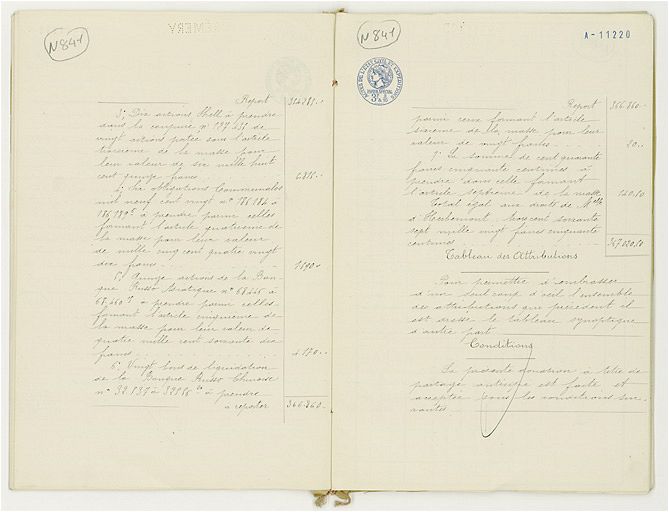 N 841
Report 354281..
3° Dix actions Shell à prendre
dans la coupure n° 187.431 de
vingt actions portée sous l'article
troisième de la masse pour
leur valeur de six mille huit
cent quinze francs 6.815..
4° Six obligations Communales
mil neuf cent vingt n° 186.184 à
186.189 à prendre parmi celles
formant l'article quatrième de
la masse pour leur valeur
de mille cent quatre vingt
dix francs 1.190..
5° Quinze actions de la Ban-
que Russo Asiatique n° 68.446 à
68.460 à prendre parmi celles
formant l'article cinquième de
la masse pour leur valeur de
quatre mille cent soixante dix
francs 4.170..
6° Vingt bons de liquidation
de la Banque Russo Chinoise
à prendre
à reporter 366.860..
N 841
A-11220
Report 366.860..
parmi ceux formant l'article
sixième de la masse pour leur
valeur de vingt francs 20..
7° La somme de cent quarante
francs cinquante centimes à
prendre dans celle formant
l'article septième de la masse 140.50
Total égal aux droits de
d'Herbemont: trois cent soixante
sept mille vingt francs cinquante
centimes 367.020.50
Tableau des Attributions
Pour permettre d'embrasser
d'un seul coup d'oeil l'ensemble
des attributions qui précèdent il
est dressé le tableau synoptique
d'autre part
Conditions
La présente donation à titre de
partage anticipé est faite et
acceptée sous les conditions sui-
vantes